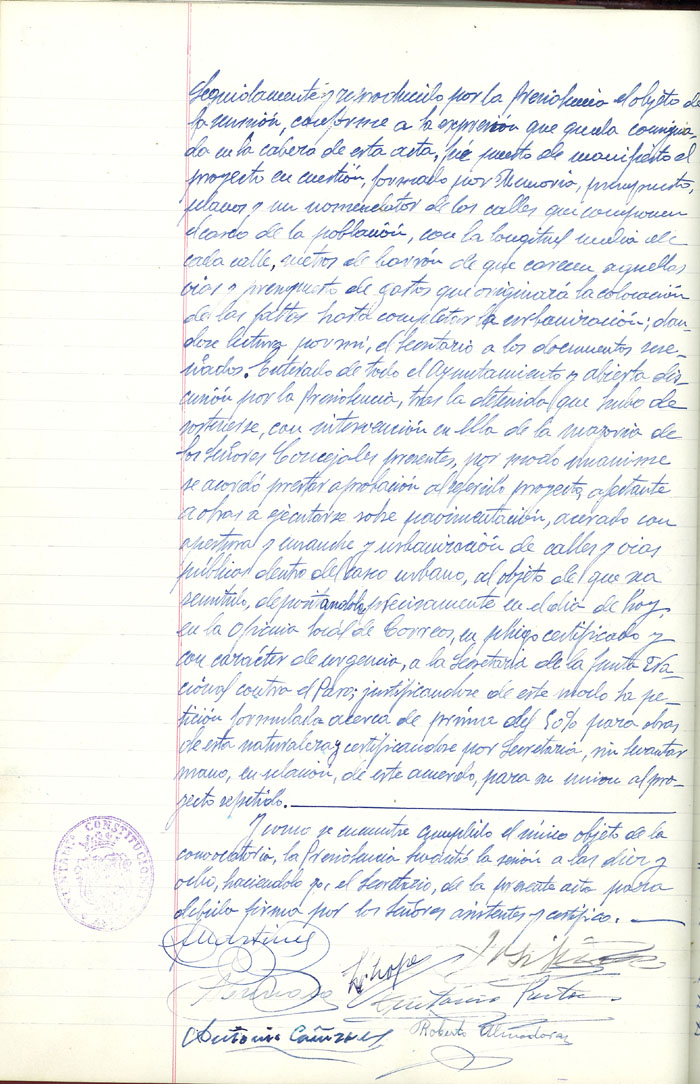 Seguidamente y reproducido por la Presidencia el objeto de
la reunión, conforme a la expresión que queda consigna-
da en la cabeza de esta acta, fué puesto de manifiesto el
proyecto en cuestión, formado por Memoria, presupuesto,
planos y un nomenclator de las calles que componen
el casco de la población, con la longitud media de
cada calle, metros de de que carecen aquellas
vias y presupuesto de gastos que originará la colocación
de las faltas hasta completar la urbanización; dan-
dose lectura por mi, el Secretario a los documentos rese-
ñados. Enterado de todo el Ayuntamiento y abierta dis-
cusión por la Presidencia, tras la detenida que hubo de
sostenerse, con intervención en ella de la mayoria de
los Señores Concejales presentes, por modo unanime
se acordó prestar aprobación al referido proyecto, afectante
a obras a ejecutarse sobre pavimentación, acerado con
apertura y ensanche y urbanización de calles y vias
públicas dentro del casco urbano, al objeto de que sea
remitido, depositandolo, precisamente en el dia de hoy,
en la Oficina local de Correos, en pliego certificado y
con carácter de urgencia, a la Secretaria de la Junta Na-
cional contra el Paro; justificandose de este modo la pe-
tición formulada acerca de prima del 50% para obras
de esta naturaleza y certificandose por Secretaria, sin levantar
mano, en relación, de este acuerdo, para su union al pro-
yecto repetido.
Y como se encuentre cumplido el único objeto de la
convocatoria, la Presidencia levantó la sesión a las diez y
ocho, haciendolo yo, el Secretario, de la presente acta para
debida firma por los Señores asistentes y certifico.
AYUNTAMIENTO CONSTITUCIONAL
Martinez
Lope
Antonio
Antonio Cañizares
Roberto Almodovar